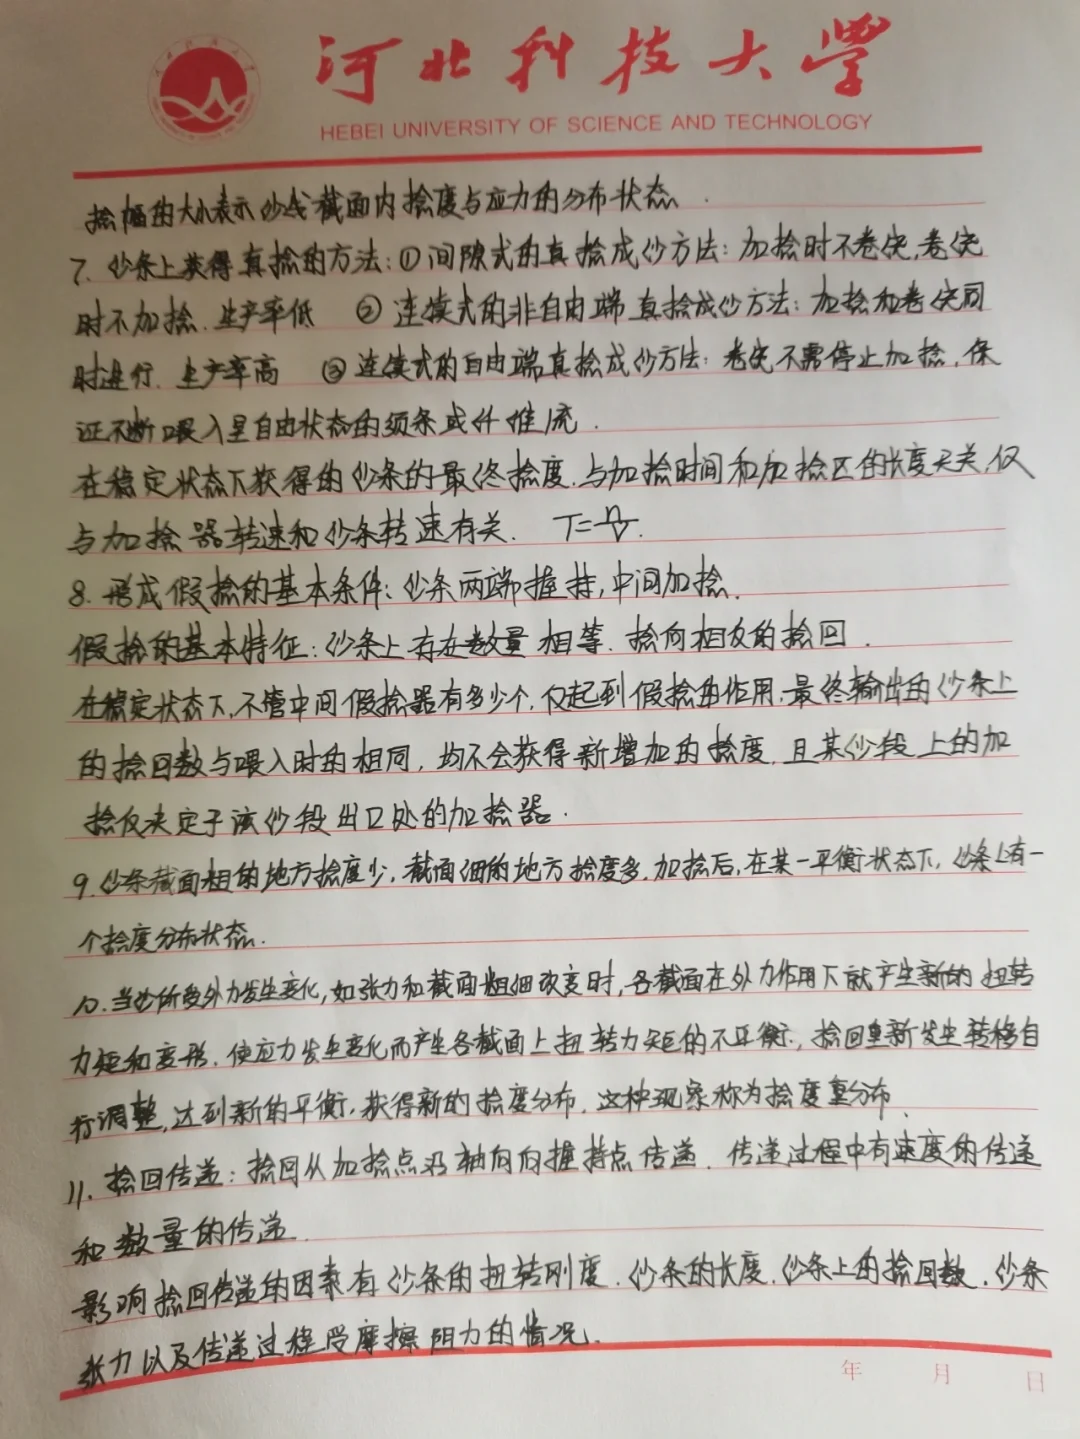 河北科技大学
HEBEI UNIVERSITY OF SCIENCE AND TECHNOLOGY
捻幅的大小表示纱线截面内捻度与应力的分布状态.
7. 纱条上获得真捻的方法:①间隙式的真捻成纱方法:加捻时不卷绕,卷绕
时不加捻.生产率低 ②连续式的非自由端真捻成纱方法:加捻和卷绕同
时进行.生产率高 ③连续式的自由端真捻成纱方法:卷绕不需停止加捻,保
证不断喂入呈自由状态的须条或纤维流.
在稳定状态下获得的纱条的最终捻度.与加捻时间和加捻区的长度无关,仅
与加捻器转速和纱条转速有关. T=n/v.
8. 形成假捻的基本条件:纱条两端握持,中间加捻.
假捻的基本特征:纱条上存在数量相等.捻向相反的捻回.
在稳定状态下,不管中间假捻器有多少个,仅起到假捻的作用,最终输出的纱条上
的捻回数与喂入时的相同,均不会获得新增加的捻度,且某纱段上的加
捻仅决定于该纱段出口处的加捻器.
9.纱条截面粗的地方捻度少,截面细的地方捻度多.加捻后,在某一平衡状态下,纱条上有一
个捻度分布状态.
10.当纱所受外力发生变化,如张力和截面粗细改变时,各截面在外力作用下就产生新的扭转
力矩和变形.使应力发生变化而产生各截面上扭转力矩的不平衡,捻回重新发生转移自
行调整,达到新的平衡,获得新的捻度分布.这种现象称为捻度重分布.
11.捻回传递:捻回从加捻点沿轴向向握持点传递.传递过程中有速度的传递
和数量的传递.
影响捻回传递的因素有纱条的扭转刚度.纱条的长度.纱条上的捻回数.纱条
张力以及传递过程受摩擦阻力的情况.
年 月 日